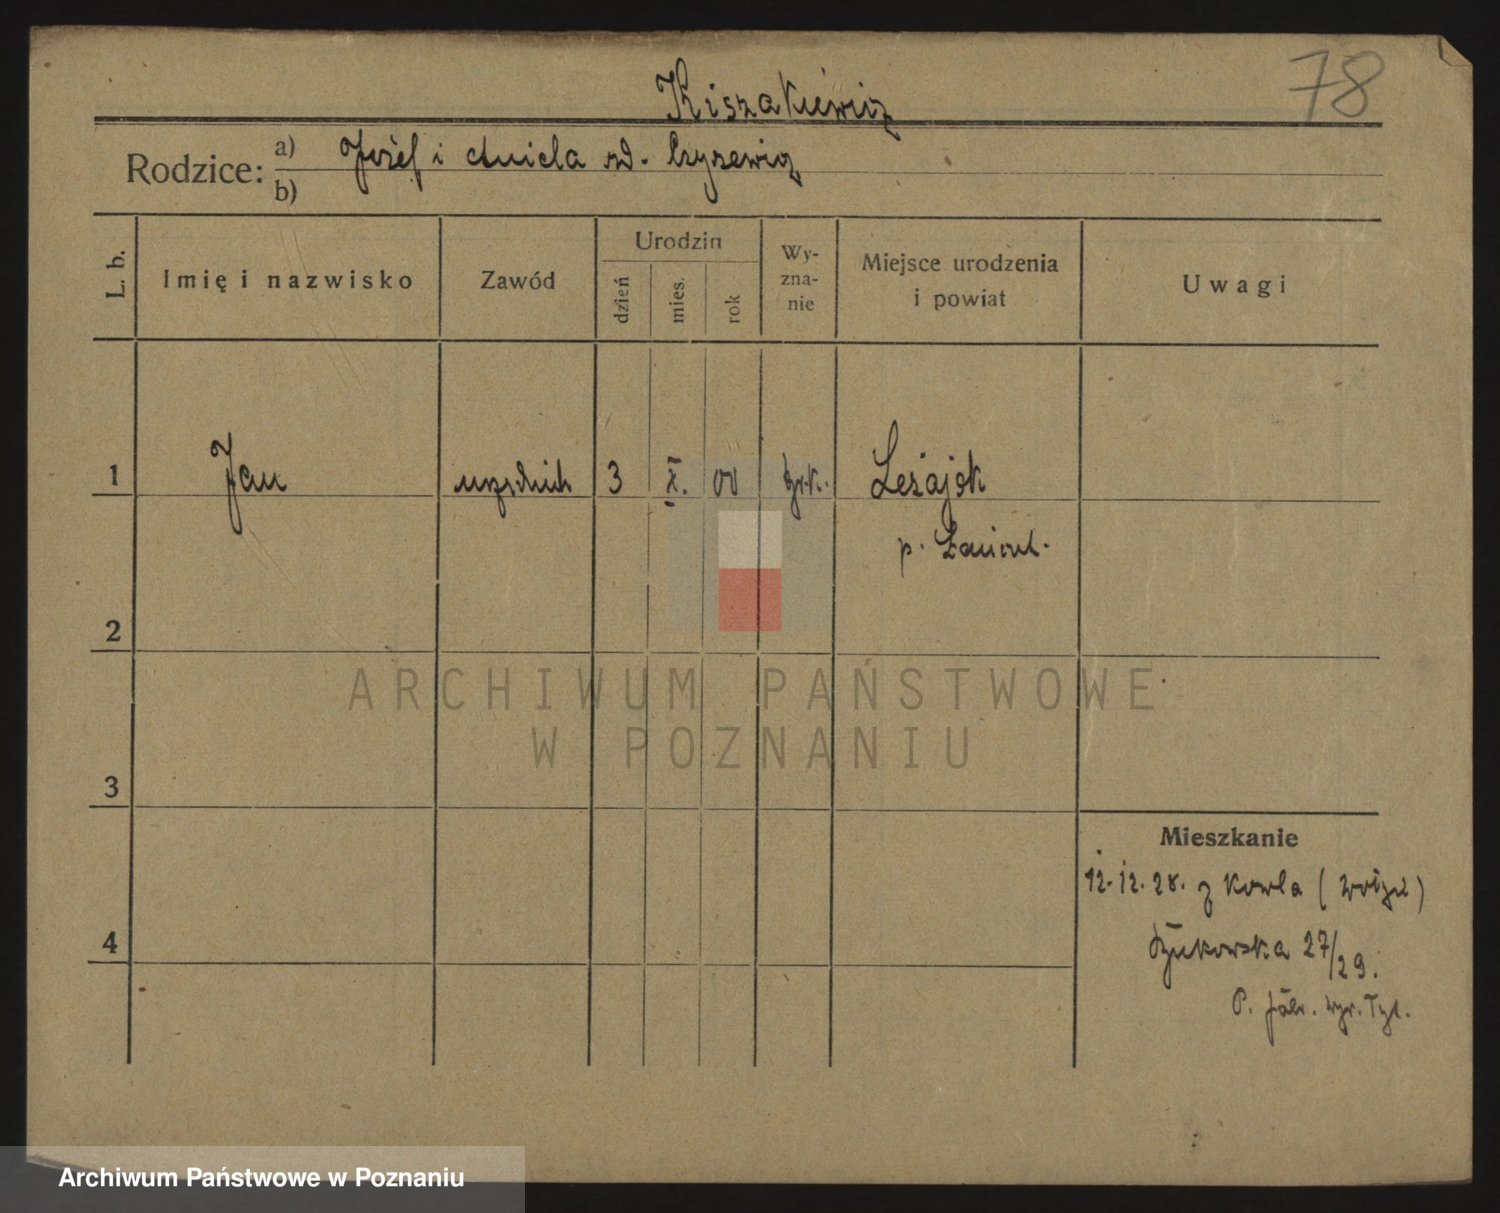 78
Kiszakiewicz
Rodzice: a) Józef i Aniela zd. Czyżewicz
b)
L. b. Imię i nazwisko Zawód Urodzin dzień mies. rok Wyznanie Miejsce urodzenia i powiat Uwagi
1 Jan urzędnik 3 X. 00 rz.k. Leżajsk
p. Łańcut.
2
ARCHIWUM PAŃSTWOWE
W POZNANIU
3
Mieszkanie
12.12.28. z Kowla (
4 Bukowska 27/29.
P. wyr. Tyt.
Archiwum Państwowe w Poznaniu